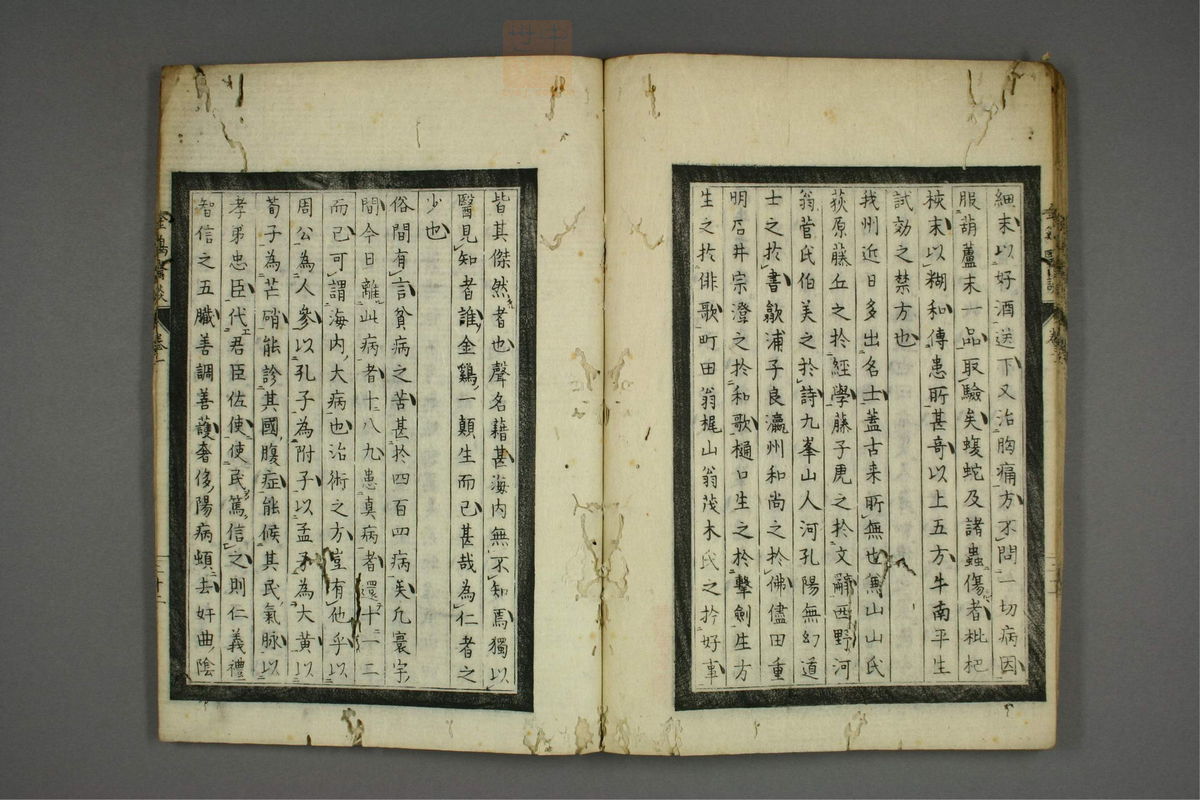 細末以好酒送下又治胸痛方不問一切病因
服葫蘆末一品取驗矣蝮蛇及諸蟲傷者枇杷
核末以糊和傳患所甚奇以上五方牛南平生
試効之禁方也
我州近日多出名士蓋古来所無也馬山山氏
荻原藤丘之於經學藤子虎之於文辭西野河
翁菅氏伯美之於詩九峯山人河孔陽無幻道
士之於書歙浦子良瀛州和尚之於佛儘田重
明石井宗澄之於和歌樋口生之於擊劍生方
生之於俳歌町田翁梶山翁茂木氏之於好事
皆其傑然者也聲名藉甚海内無不知焉獨以
醫見知者誰金鷄一顛生而已甚哉為仁者之
少也
俗間有言貧病之苦甚於四百四病矣凡寰宇
間今日離此病者十八九患真病者還十一二
而已可謂海内大病也治術之方豈有他乎以
周公為人參以孔子為附子以孟子為大黄以
荀子為芒硝能診其國腹症能候其民氣脉以
孝弟忠臣代君臣佐使使民篤信之則仁義禮
智信之五臟善調善護奢侈陽病頓去奸曲陰